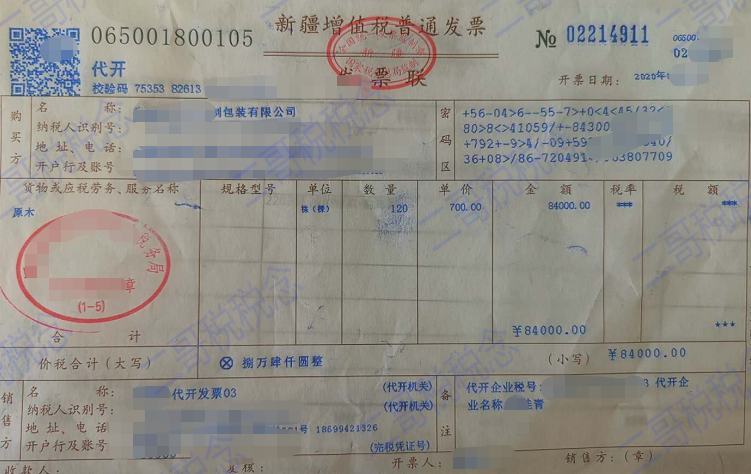 新疆增值税普通发票
065001800105
№ 02214911
06500
02
代开
校验码 75353 82613
发票联
开票日期： 2020年
购买方
名 称： 刷包装有限公司
纳税人识别号：
地 址、电 话：
开户行及账号
密码区
+56-04>6--55-7>+0<4<45/32<
80>8<>41059/+-84300
+792+-9>4/-09+59
36+08>/86-7204914 03807709
货物或应税劳务、服务名称 规格型号 单位 数 量 单 价 金 额 税率 税 额
原木 株（棵） 120 700.00 84000.00 *** ***
税务局
章
(1-5)
合 计 ¥84000.00 ***
价税合计（大写） ⊗ 捌万肆仟圆整 （小写） ¥84000.00
销售方
名 称： 代开发票03 (代开机关)
纳税人识别号： (代开机关)
地 址、电 话 号 18699421326
开户行及账号 (完税凭证号)
备注
代开企业税号: 代开企
业名称 青
收款人： 复核： 开票人： 销售方：（章）
二哥税税念